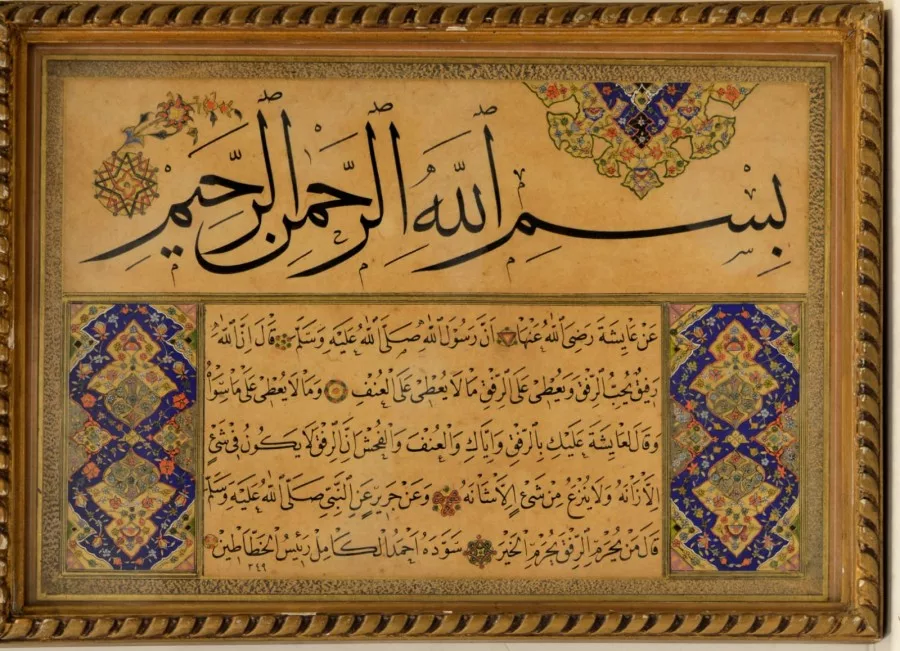 بِسْمِ اللّٰهِ الرَّحْمٰنِ الرَّحِيْمِ
عَنْ عَايِشَةَ رَضِيَ اللّٰهُ عَنْهَا اَنَّ رَسُولَ اللّٰهِ صَلَّى اللّٰهُ عَلَيْهِ وَسَلَّمَ قَالَ اِنَّ اللّٰهَ
رَفِيقٌ يُحِبُّ الرِّفْقَ وَيُعْطِى عَلَى الرِّفْقِ مَا لَا يُعْطِى عَلَى الْعُنْفِ وَمَا لَا يُعْطِى عَلَى مَا سِوَاهُ
وَقَالَ لِعَايِشَةَ عَلَيْكِ بِالرِّفْقِ وَاِيَّاكِ وَالْعُنْفَ وَالْفُحْشَ اِنَّ الرِّفْقَ لَا يَكُونُ فِى شَىْءٍ
اِلَّا زَانَهُ وَلَا يُنْزَعُ مِنْ شَىْءٍ اِلَّا شَانَهُ وَعَنْ جَرِيرٍ عَنِ النَّبِىِّ صَلَّى اللّٰهُ عَلَيْهِ وَسَلَّمَ
قَالَ مَنْ يُحْرَمِ الرِّفْقَ يُحْرَمِ الْخَيْرَ سَوَّدَهُ اَحْمَدُ الْكَامِلُ رَئِيسُ الْخَطَّاطِينَ